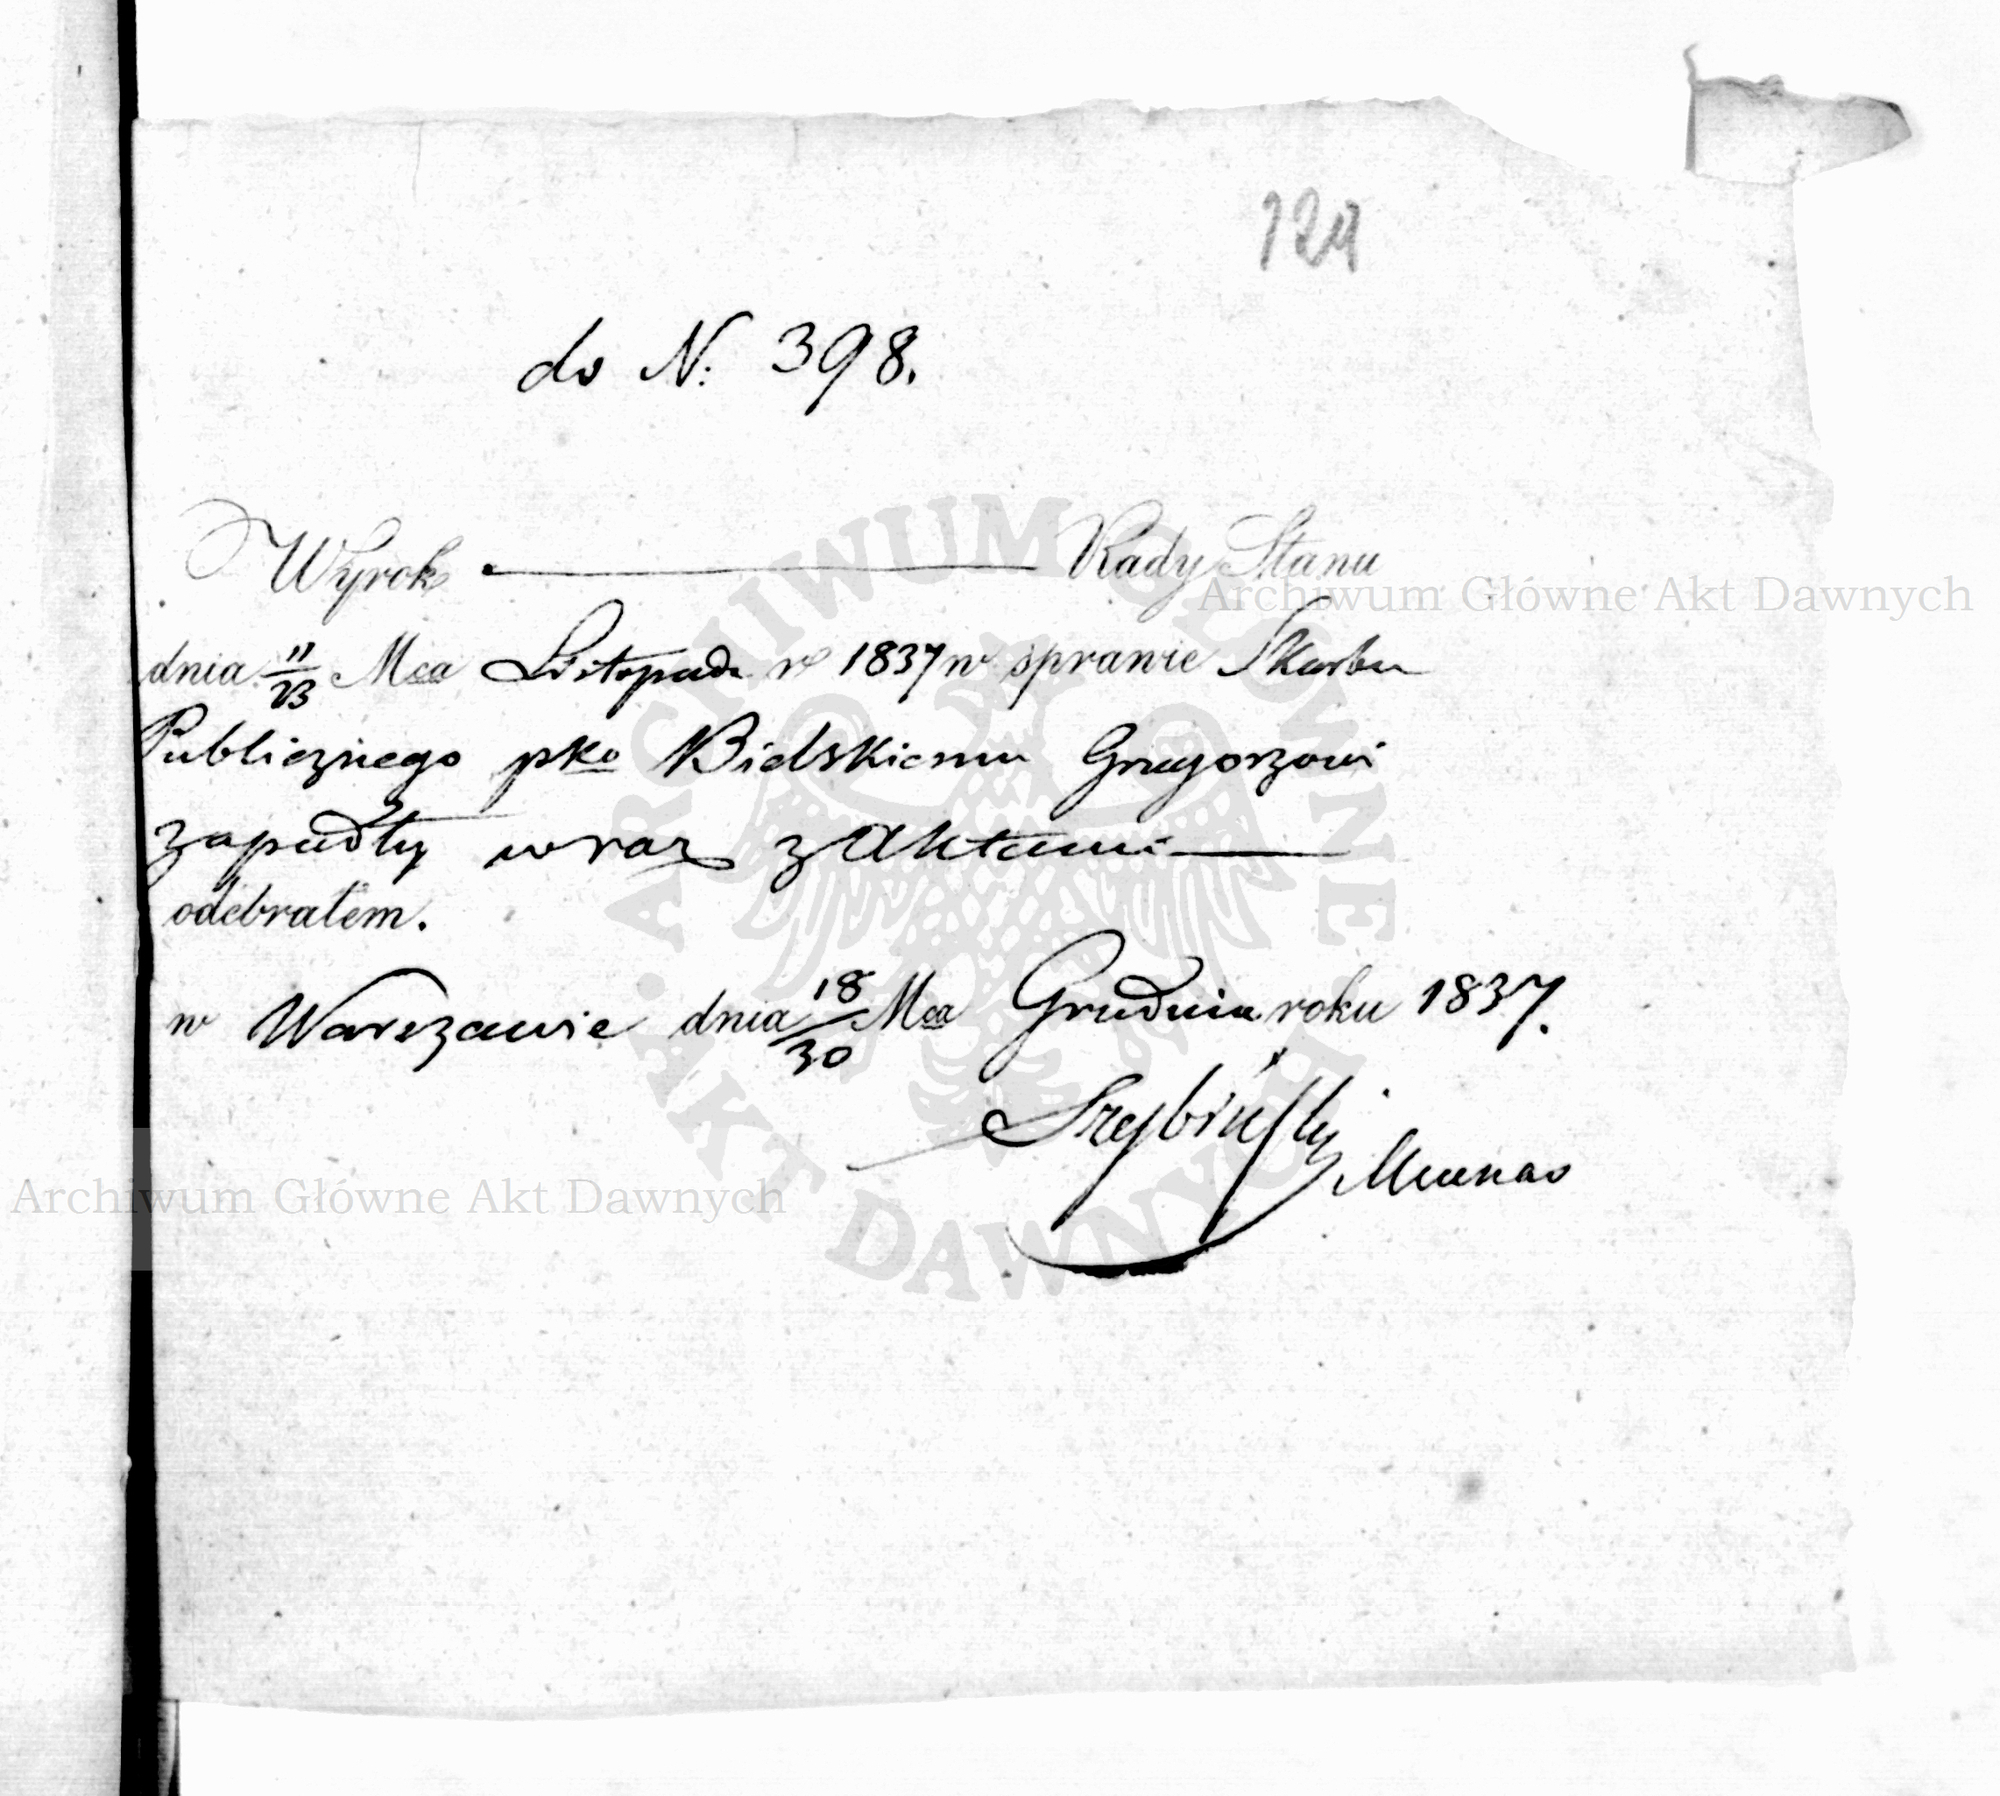 124
do N: 398.
Wyrok Rady Stanu
dnia 11/23 Mca Listopada r 1837 w sprawie Skarbu
Publicznego pko Bielskiemu Grzegorzowi
zapadły wraz z Aktami
odebrałem.
w Warszawie dnia 18/30 Mca Grudnia roku 1837.
ARCHIWUM GŁÓWNE AKT DAWNYCH
Archiwum Główne Akt Dawnych
Archiwum Główne Akt Dawnych